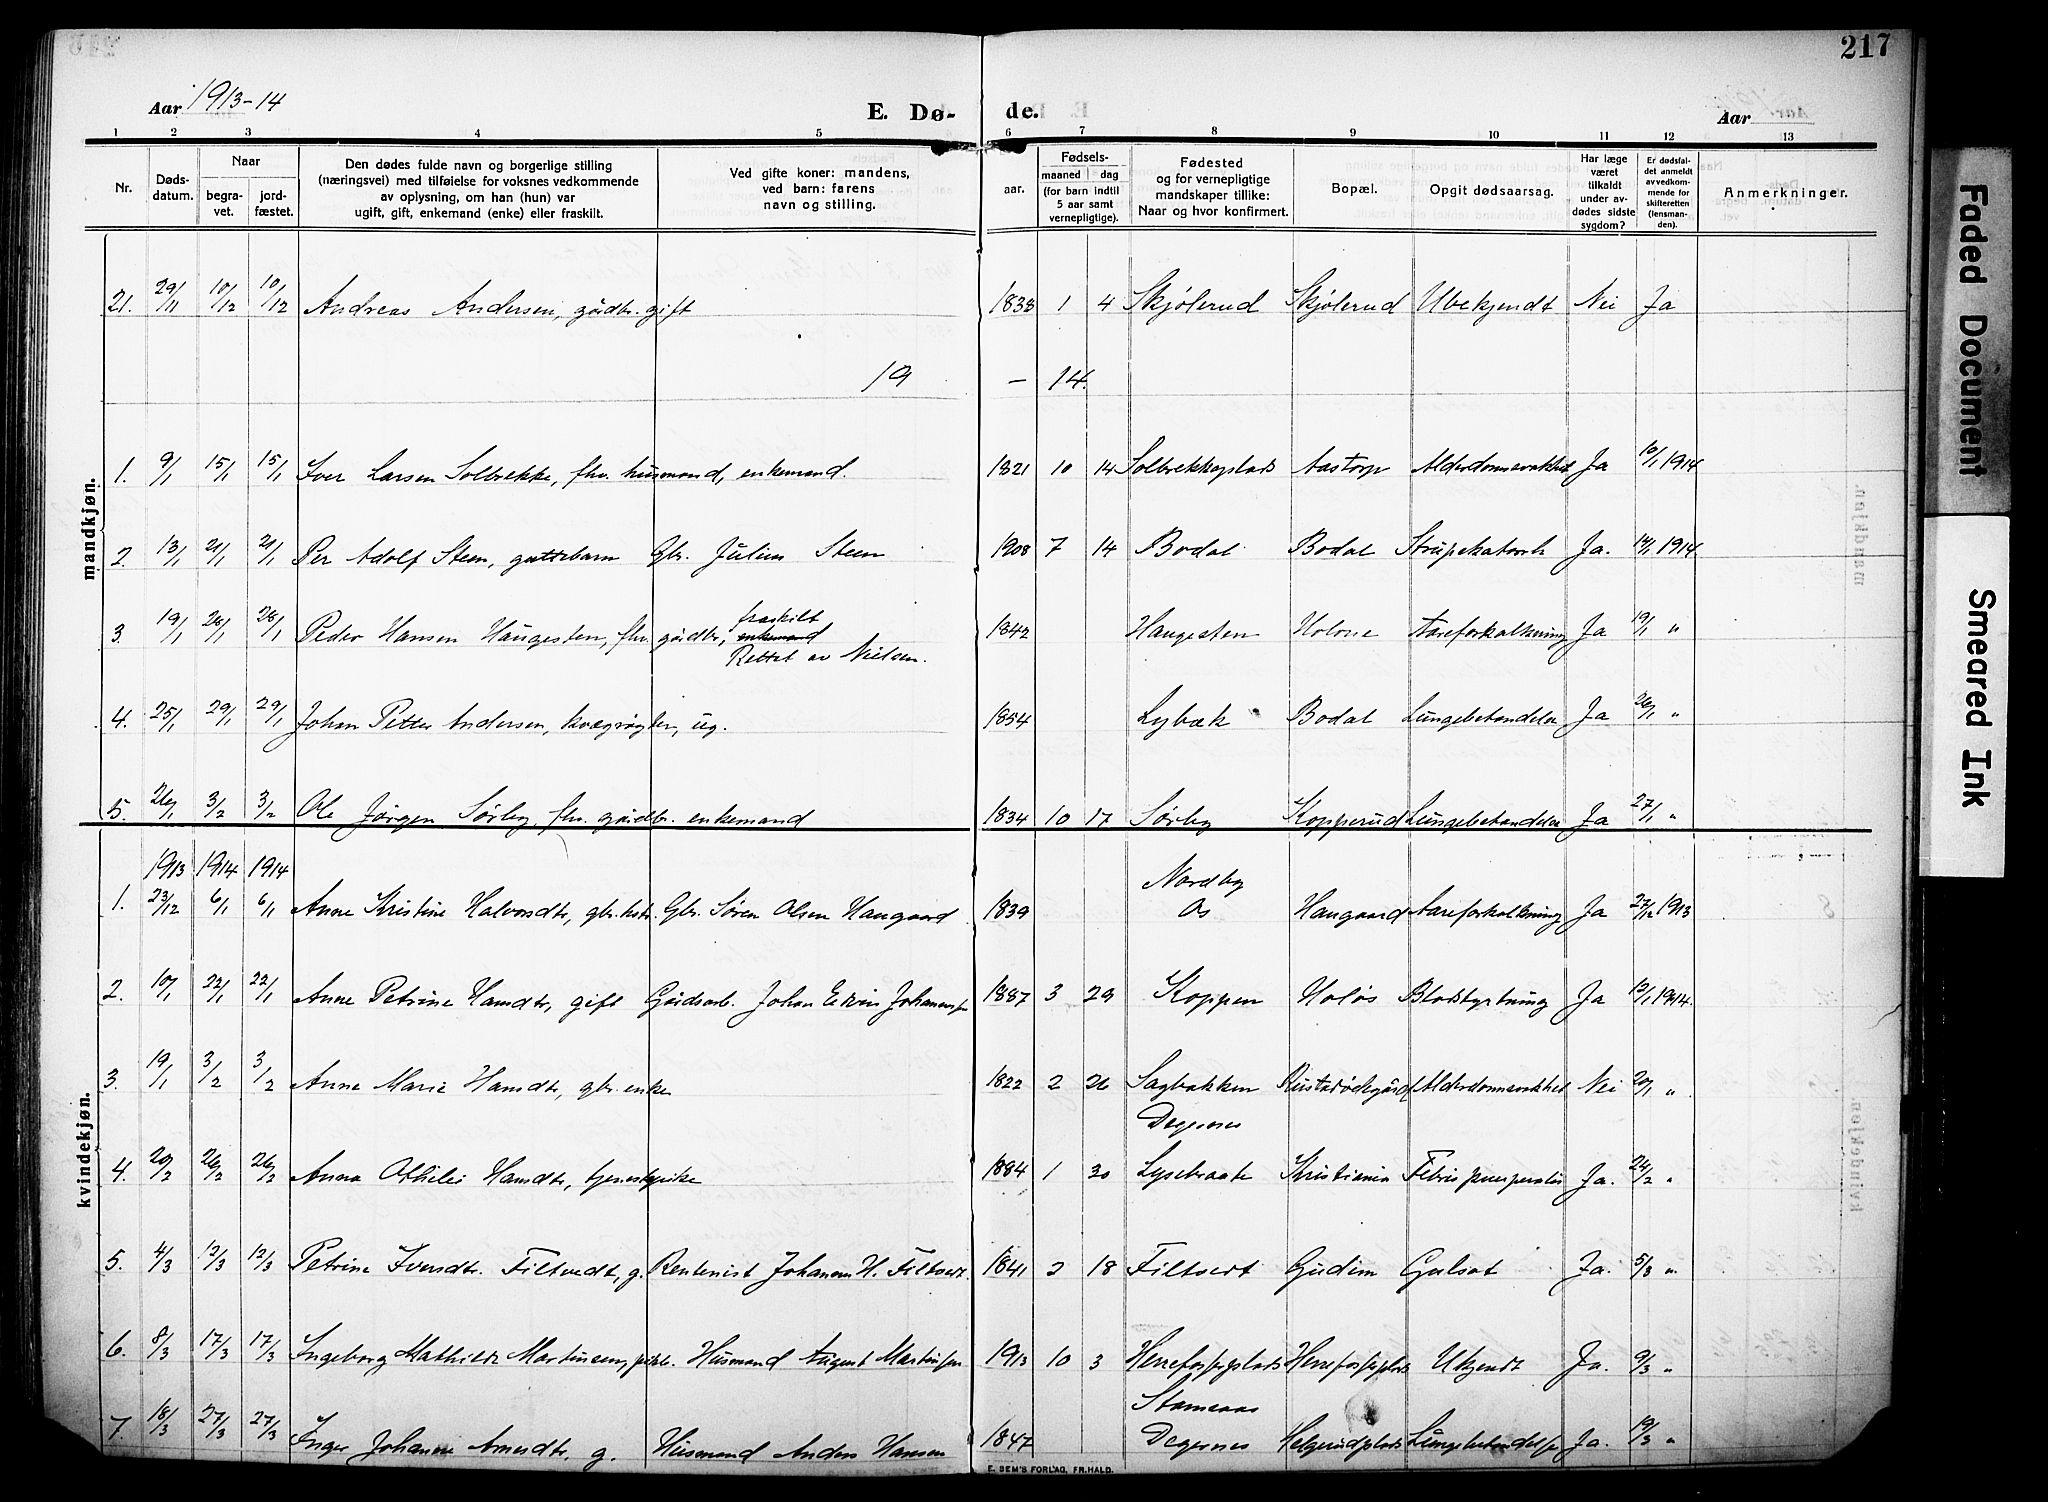 217
Aar 1913-14 E. Dø- de. Aar
1 2 3 4 5 6 7 8 9 10 11 12 13
Nr. Dødsdatum. Naar begravet. jordfæstet. Den dødes fulde navn og borgerlige stilling (næringsvei) med tilføielse for voksnes vedkommende av oplysning, om han (hun) var ugift, gift, enkemand (enke) eller fraskilt. Ved gifte koner: mandens, ved barn: farens navn og stilling. aar. Fødsels- maaned dag (for barn indtil 5 aar samt vernepligtige). Fødested og for vernepligtige mandskaper tillike: Naar og hvor konfirmert. Bopæl. Opgit dødsaarsag. Har læge været tilkaldt under avdødes sidste sygdom? Er dødsfaldet anmeldt av vedkommende for skifteretten (lensmanden). Anmerkninger.
mandkjøn.
21. 29/11 10/12 10/12 Andreas Andersen, gårdbr. gift 1833 1 4 Skjølerud Skjølerud Ubekjendt Nei Ja
19 — 14.
1. 9/1 15/1 15/1 Iver Larsen Solbrekke, fhv. husmand, enkemand. 1821 10 14 Solbrekkeplads Aastorp Alderdomssvakhet Ja 10/1 1914
2. 13/1 21/1 21/1 Per Adolf Steen, guttebarn Gbr. Julius Steen 1908 7 14 Bodal Bodal Strupekatarrh Ja. 14/1 1914
3. 19/1 28/1 28/1 Peder Hansen Haugesten, fhv. gårdbr., fraskilt enkemand 1842 Haugesten Holone Aareforkalkning Ja 19/1 "
Rettet av Nielsen.
4. 25/1 29/1 29/1 Johan Petter Andersen, kvægrøgter, ug. 1854 Lybæk Bodal Lungebetændelse Ja 26/1 "
5. 26/1 3/2 3/2 Ole Jørgen Sørby, fhv. gårdbr. enkemand 1834 10 17 Sørby Kopperud Lungebetændelse Ja 27/1 "
kvindekjøn.
1913 1914 1914 Nordby
1. 23/12 6/1 6/1 Anne Kristine Halvorsdtr, gbr.kstr. Gbr. Søren Olsen Haugaard 1839 Os Haugaard Aareforkalkning Ja 27/12 1913
2. 10/1 22/1 22/1 Anne Petrine Hansdtr, gift Gårdsarb. Johan Edvin Johannesen 1887 3 29 Koppen Holøs Blodstyrtning Ja 12/1 1914.
3. 19/1 3/2 3/2 Anne Marie Hansdtr, gbr. enke 1822 2 26 Sagbakken Rustadødegård Alderdomssvakhet Nei 20/1 "
Degernes
4. 20/2 26/2 26/2 Anna Othilie Hansdtr, tjenestepike 1884 1 30 Lysebraate Kristiania Febris puerperalis Ja. 24/2 "
5. 4/3 12/3 12/3 Petrine Iversdtr. Filtvedt, g. Rentenist Johannes H. Filtvedt. 1841 2 18 Filtvedt Gudim Gulsot Ja. 5/3 "
6. 8/3 17/3 17/3 Ingeborg Mathilde Martinsen, pikb. Husmand August Martinsen 1913 10 3 Herrefosseplads Herrefosseplads Ukjendt Ja. 9/3 "
Stamsaas
7. 18/3 27/3 27/3 Inger Johanne Arnesdtr, g. Husmand Anders Hansen 1847 Degernes Helgerudplads Lungebetændelse Ja. 19/3 "
E. SEM'S FORLAG, FR.HALD.
Faded Document
Smeared Ink